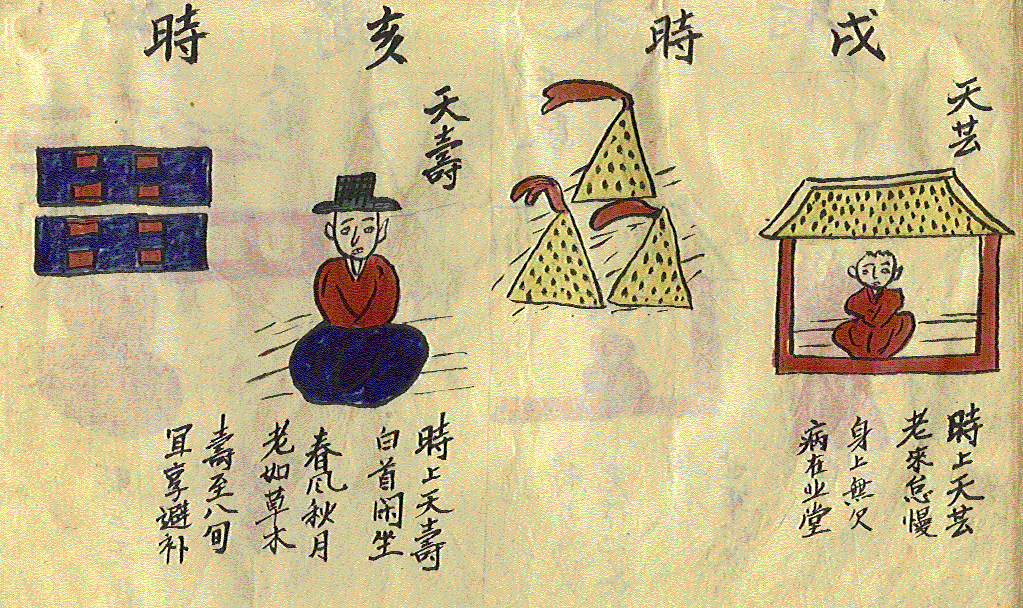 戌時
天芸
時上天芸
老來怠慢
身上無欠
病在业堂
亥時
天壽
時上天壽
白首闲坐
春风秋月
老如草木
壽至八旬
冝享避补